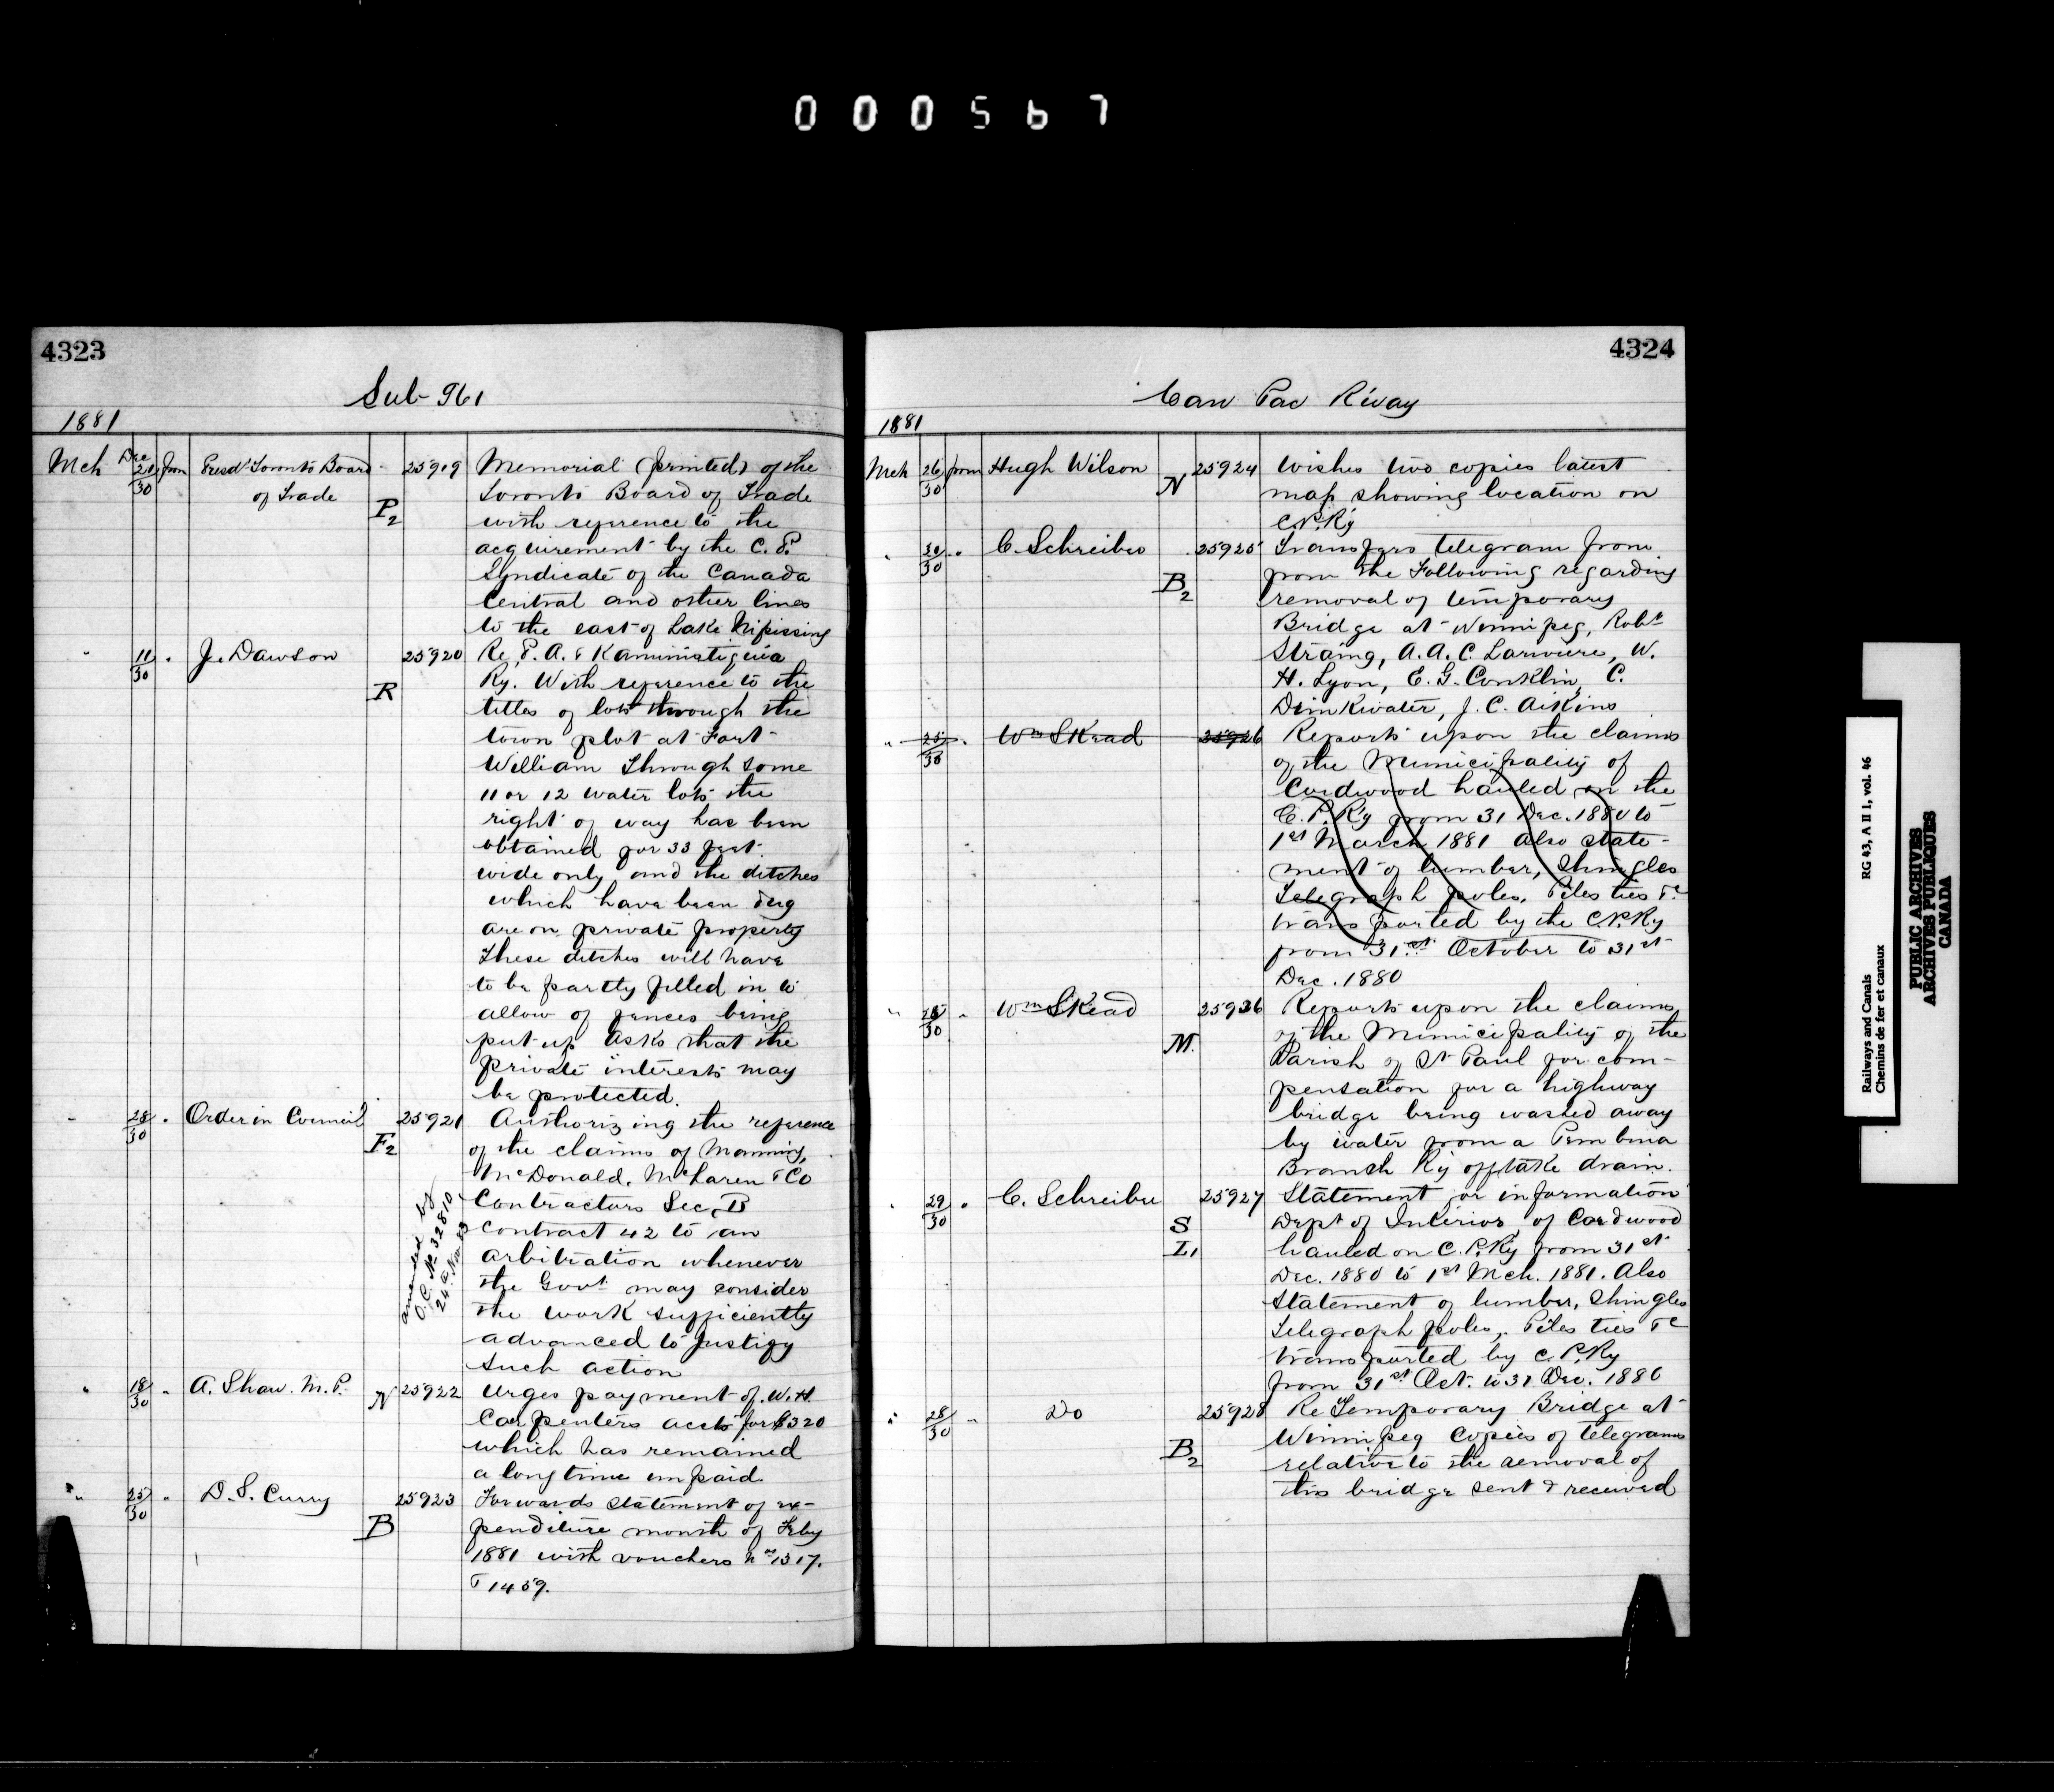 000567
4323
Sub 961
1881
Mch Dec 21/30 from Presdt Toronto Board of Trade P2 25919 Memorial (printed) of the
Toronto Board of Trade
with reference to the
acquirement by the C. P.
Syndicate of the Canada
Central and other lines
to the east of Lake Nipissing
" 11/30 " J. Dawson R 25920 Re P. A. & Kaministiquia
Ry. With reference to the
titles of lots through the
town plot at Fort
William Through some
11 or 12 water lots the
right of way has been
obtained for 33 feet
wide only and the ditches
which have been dug
are on private property
These ditches will have
to be partly filled in to
allow of fences being
put up Asks that the
private interests may
be protected.
" 28/30 " Order in Council F2 25921 Authorizing the reference
of the claims of Manning,
McDonald, McLaren & Co
Contractors Sec. B
Contract 42 to an
arbitration whenever
the Govt. may consider
the work sufficiently
advanced to justify
such action
amended by
O.C. No 32810
24th Nov. 83
" 18/30 " A. Shaw. M.P. N 25922 Urges payment of W. H.
Carpenters accts for $320
which has remained
a long time unpaid
" 25/30 " D. S. Curry B 25923 Forwards statement of ex-
penditure month of Feby
1881 with vouchers nos 1317.
& 1459.
4324
Can Pac Rway
1881
Mch 26/30 from Hugh Wilson N 25924 Wishes two copies latest
map showing location on
C.P.Ry
" 30/30 " C. Schreiber B2 25925 Transfers telegram from
from the Following regarding
removal of temporary
Bridge at Winnipeg, Robt
Strang, A. A. C. Lariviere, W.
H. Lyon, E. G. Conklin, C.
Drinkwater, J. C. Aikins
" 25/30 " Wm Skead 25926 Reports upon the claims
of the Municipality of
Cordwood hauled on the
C. P. Ry from 31 Dec. 1880 to
1st March 1881 Also state-
ment of lumber, Shingles
Telegraph poles, Piles ties &c
transported by the C.P.Ry
from 31st October to 31st
Dec. 1880
" 25/30 " Wm Skead M. 25926 Reports upon the claims
of the Municipality of the
Parish of St Paul for com-
pensation for a highway
bridge being washed away
by water from a Pembina
Branch Ry offtake drain.
" 29/30 " C. Schreiber S L1 25927 Statement for information
Dept of Interior, of Cordwood
hauled on C. P. Ry from 31st
Dec. 1880 to 1st Mch. 1881. Also
Statement of lumber, Shingles
Telegraph poles, Piles ties &c
transported by C. P. Ry
from 31st Oct. to 31 Dec. 1880
" 28/30 " Do B2 25928 Re Temporary Bridge at
Winnipeg Copies of telegrams
relative to the removal of
this bridge sent & received
Railways and Canals
Chemins de fer et canaux
RG 43, A II 1, vol. 46
PUBLIC ARCHIVES
ARCHIVES PUBLIQUES
CANADA